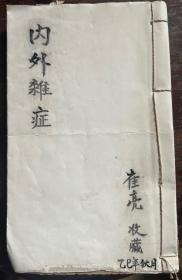 内外雜症
崔亮 收藏
乙巳年秋月